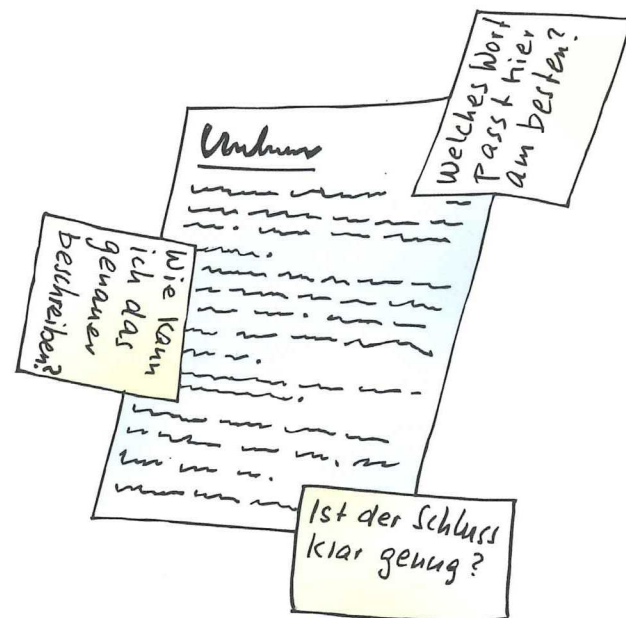 Welches Wort
passt hier
am besten?
Wie kann
ich das
genauer
beschreiben?
Ist der Schluss
klar genug?